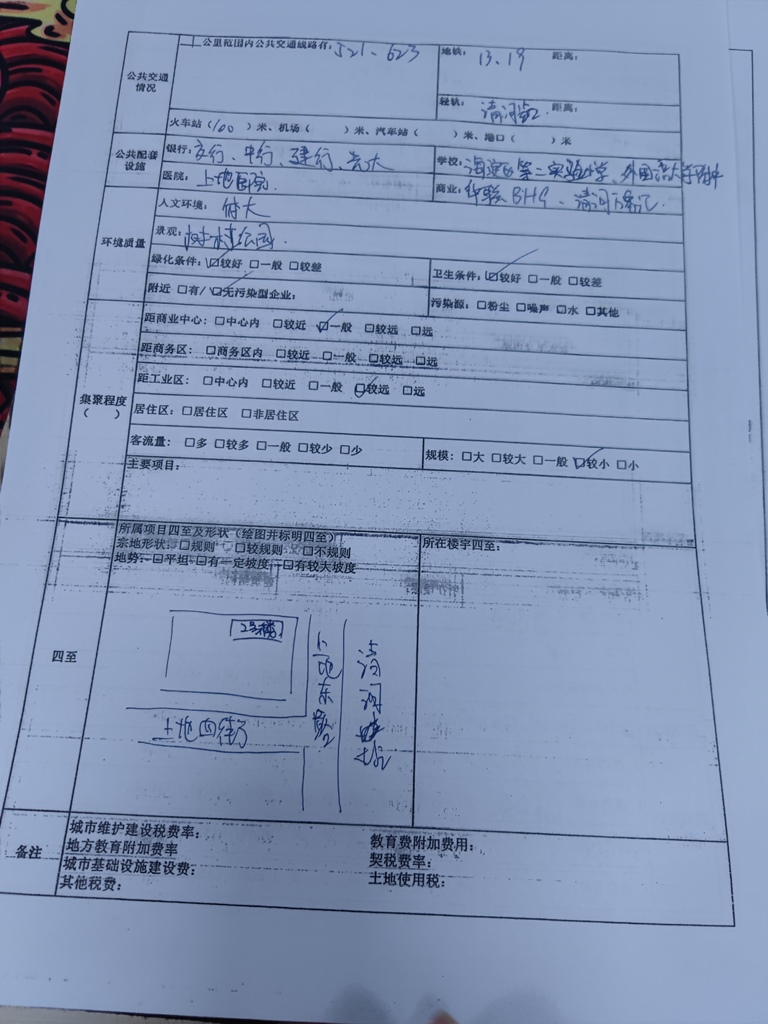 公共交通情况
一公里范围内公共交通线路有: 521、623
地铁: 13、19 距离:
轻轨: 清河站 距离:
火车站(100)米、机场( )米、汽车站( )米、港口( )米
公共配套设施
银行: 交行、中行、建行、光大
学校: 海淀区第二实验小学、外国语大学附中
医院: 上地医院
商业: 华联BHG、清河
环境质量
人文环境: 体大
景观: 树村公园
绿化条件: ☑较好 □一般 □较差
卫生条件: ☑较好 □一般 □较差
附近 □有/☑无污染型企业:
污染源: □粉尘 □噪声 □水 □其他
集聚程度( )
距商业中心: □中心内 □较近 ☑一般 □较远 □远
距商务区: □商务区内 □较近 □一般 □较远 □远
距工业区: □中心内 □较近 □一般 ☑较远 □远
居住区: □居住区 □非居住区
客流量: □多 □较多 □一般 □较少 □少
规模: □大 □较大 □一般 ☑较小 □小
主要项目:
四至
所属项目四至及形状(绘图并标明四至)
宗地形状: □规则 □较规则 □不规则
地势: □平坦 □有一定坡度 □有较大坡度
所在楼宇四至:
2号楼
上地东路
清河
上地四街
备注
城市维护建设税费率:
教育费附加费用:
地方教育附加费率
契税费率:
城市基础设施建设费:
土地使用税:
其他税费: